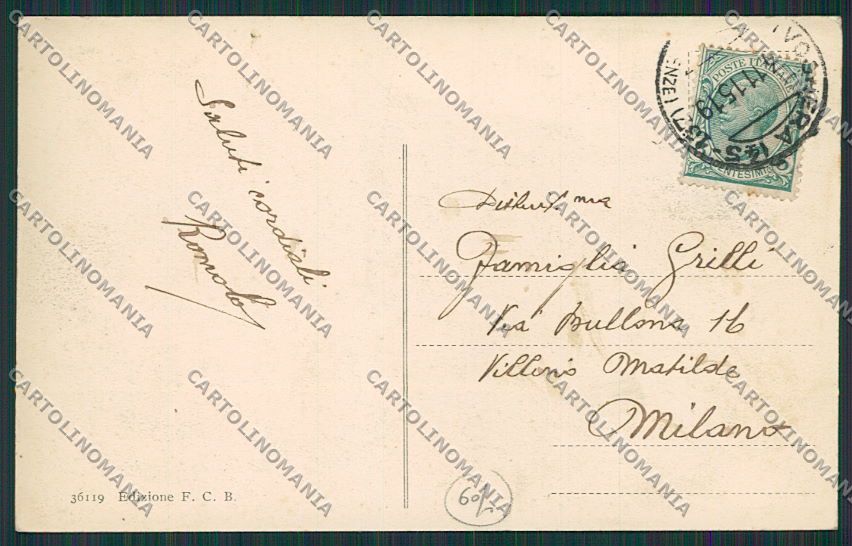 Saluti cordiali
Romolo
VOGHERA
11.5.19
POSTE ITALIANE
CENTESIMI
Famiglia Grilli
Via Bullona 16
Villino Matilde
Milano
36119 Edizione F. C. B.
60
CARTOLINOMANIA